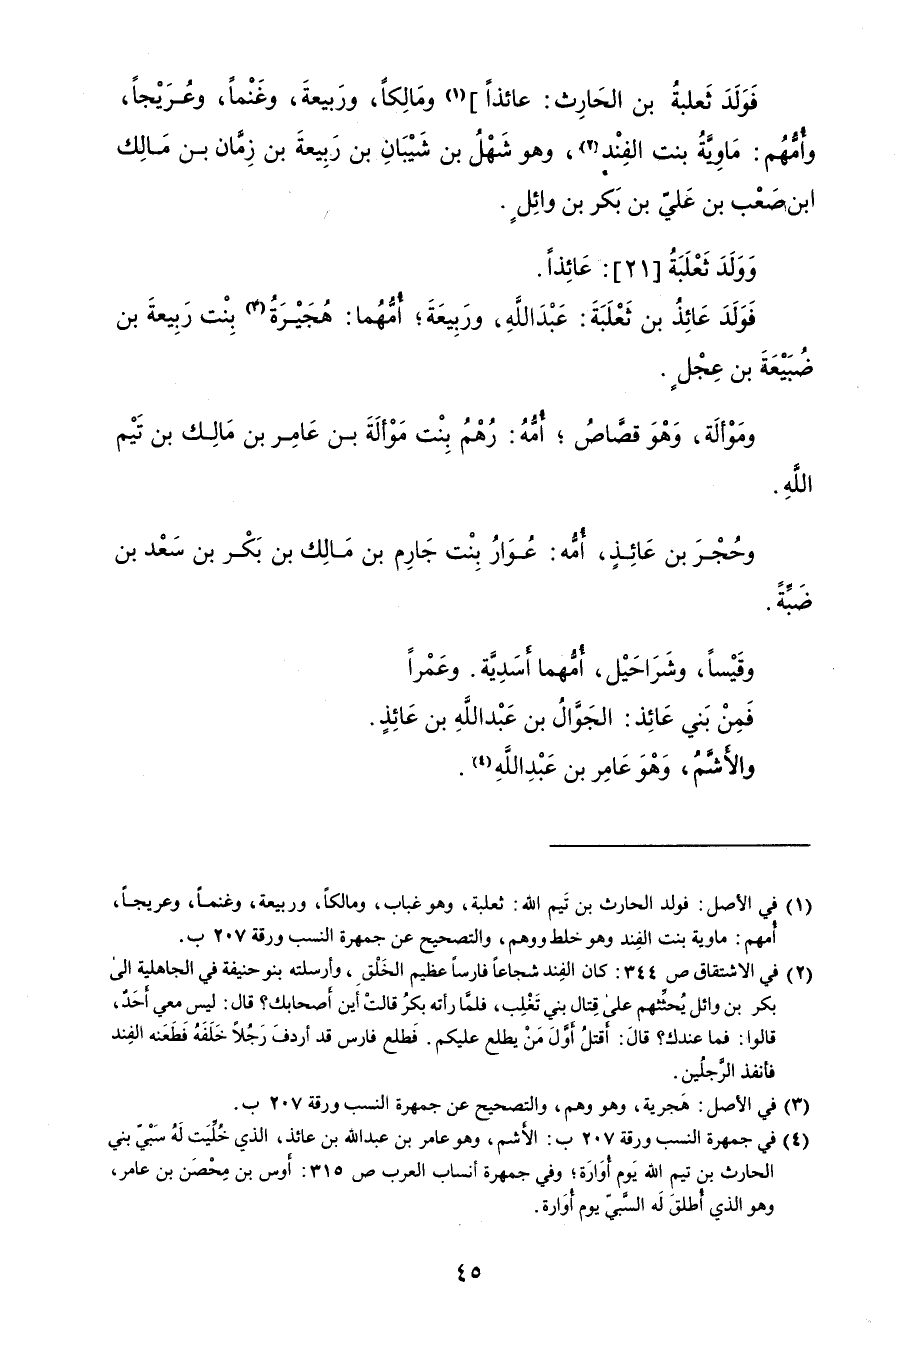 فَوَلَدَ ثَعلبةُ بن الحَارِث: عائذاً ](١) ومَالِكاً، ورَبيعةَ، وغَنْماً، وعُـرَيْجاً،
وأُمُّهُم: مَاوِيَّةُ بنت الفِنْدِ(٢)، وهو شَهْلُ بن شَيْبَانِ بن رَبِيعةَ بن زِمَّان بـن مَـالِك
ابن صَعْب بن عَليّ بن بَكر بن وائِلٍ.
وَوَلَدَ ثَعْلَبَةُ [٢١]: عَائِذاً.
فَولَدَ عَائِذُ بن ثَعْلَبَةَ: عَبْدَاللَّهِ، ورَبِيعَةَ؛ أُمُّهُما: هُجَيْـرَةُ(٣) بِنْت رَبِيعةَ بن
ضُبَيْعَةَ بن عِجْلٍ.
ومَوْألَة، وَهْوَ قصَّاصُ؛ أُمُّهُ: رُهْمُ بِنْت مَوْألَةَ بـن عَامِـر بن مَالِـك بن تَيْم
اللَّهِ.
وحُجْـرَ بن عَائِـذٍ، أُمُّه: عُـوَارُ بِنْت جَارِم بن مَـالِك بن بَكْـر بن سَعْد بن
ضَبَّةَ.
وقَيْساً، وشَرَاحَيْل، أُمُّهما أَسَدِيَّة. وعَمْراً
فَمِنْ بَني عَائِذ: الجَوَّالُ بن عَبْداللَّهِ بن عَائِذٍ.
والأَشَّمُ، وَهْوَ عَامِر بن عَبْدِاللَّهِ(٤).
(١) في الأصل: فولد الحارث بن تَيم الله: ثعلبة، وهو غباب، ومالكاً، وربيعة، وغنمـاً، وعريجـاً،
أمهم: ماوية بنت الفِند وهو خلط ووهم، والتصحيح عن جمهرة النسب ورقة ٢٠٧ ب.
(٢) في الاشتقاق ص ٣٤٤: كان الفِند شجاعاً فارساً عظيم الخَلْقِ، وأرسلته بنو حنيفة في الجاهلية الىٰ
بكر بن وائل يُحثّهم علىٰ قِتال بني تَغْلِب، فلمَّا رأته بكرُ قالتْ أين أصحابك؟ قال: ليس معي أَحَدٌ،
قالوا: فما عندك؟ قالَ: أقتلُ أوَّلَ مَنْ يطلع عليكم. فَطلع فارس قد أردفَ رَجُلاً خَلفَهُ فَطَعَنه الفِند
فأنفذ الرَّجلَين.
(٣) في الأصل: هَجرية، وهو وهم، والتصحيح عن جمهرة النسب ورقة ٢٠٧ ب.
(٤) في جمهرة النسب ورقة ٢٠٧ ب: الأشم، وهو عامر بن عبدالله بن عائذ، الذي خُلِّيَت لَهُ سَبْيّ بني
الحارث بن تيم الله يَوم أُوَارَة؛ وفي جمهرة أنساب العرب ص ٣١٥: أوس بن مِحْصَن بن عامر،
وهو الذي أُطلقَ لَه السَّبيّ يوم أُوَارة.
٤٥